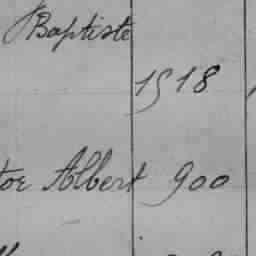 Baptiste
1518
tor Albert 900